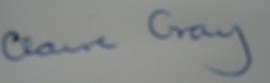 Claire Gray